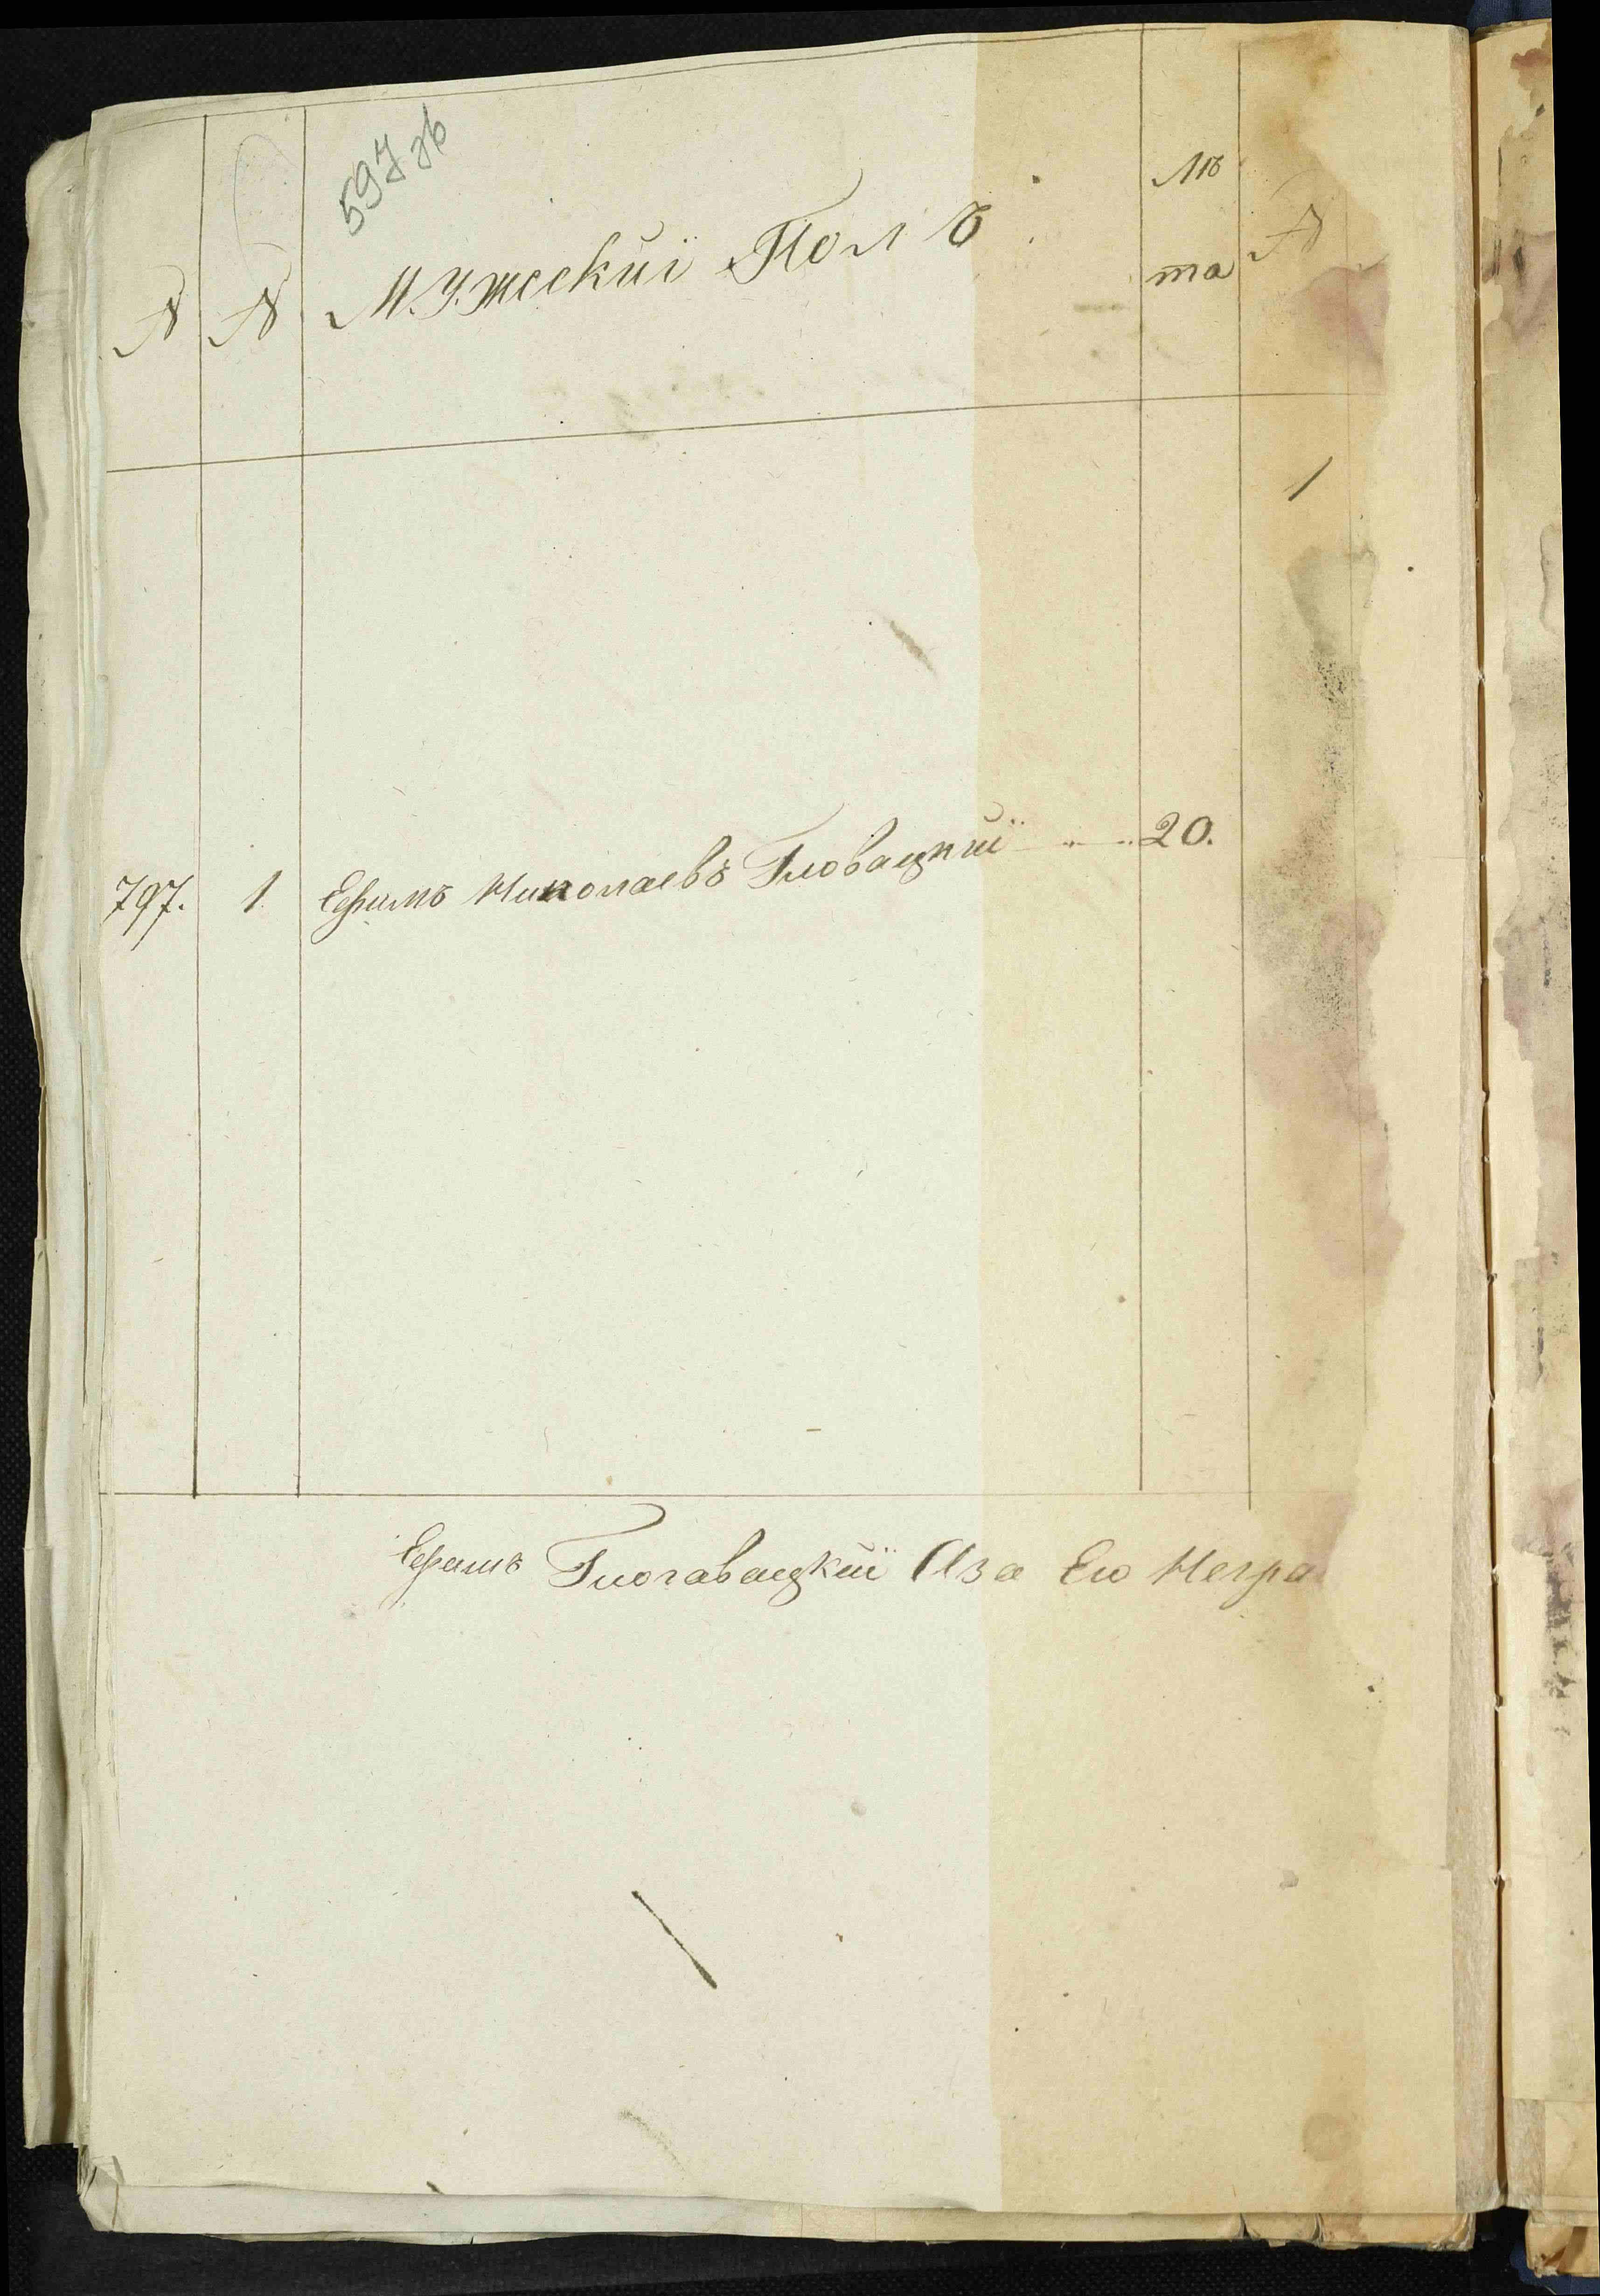 597 зв
Лѣ
№ № Мужескїй Полъ та №
1
797. 1 Ефимъ Николаевъ Гловацкїй 20.
Ефимъ Глогавацкїй Аза Ево Негра